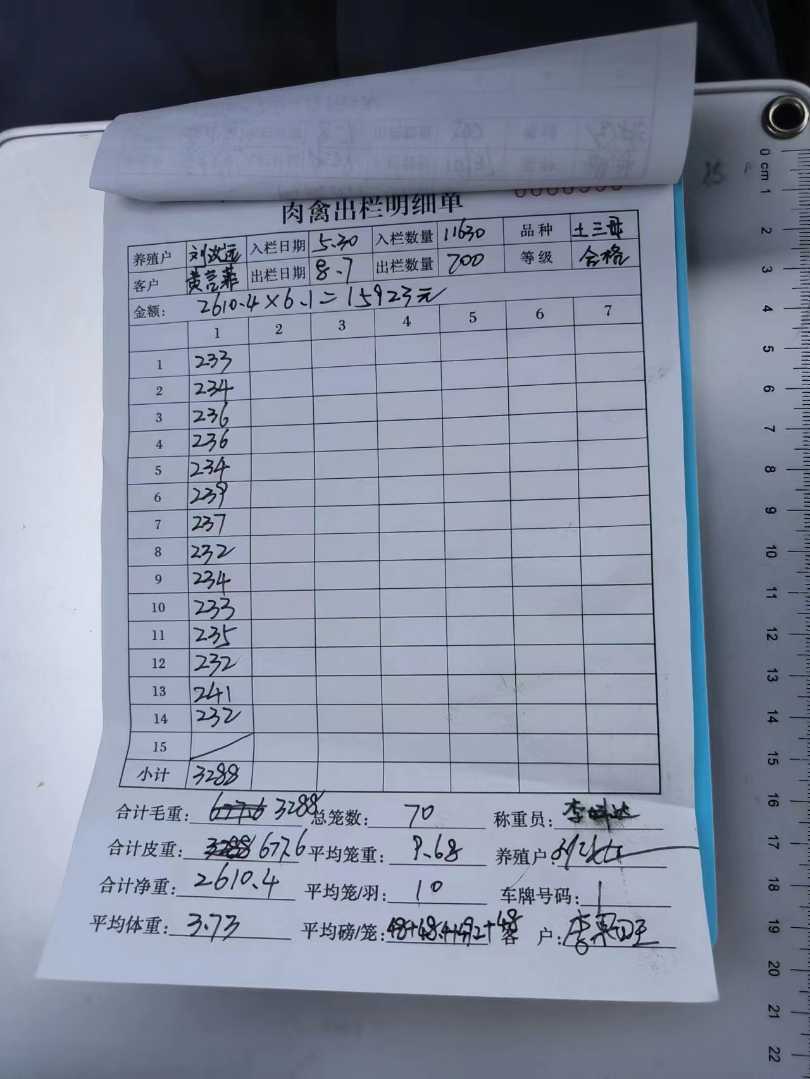 肉禽出栏明细单
养殖户 入栏日期 5.30 入栏数量 11630 品种 土三母
客户 出栏日期 8.7 出栏数量 700 等级 合格
金额: 2610.4×6.1=15923元
1 2 3 4 5 6 7
1 233
2 234
3 236
4 236
5 234
6 239
7 237
8 232
9 234
10 233
11 235
12 232
13 241
14 232
15
小计 3288
合计毛重: 677.6 3288 总笼数: 70 称重员:
合计皮重: 3288 677.6 平均笼重: 9.68 养殖户:
合计净重: 2610.4 平均笼/羽: 10 车牌号码:
平均体重: 3.73 平均磅/笼: 48+48.4+49.2+48 客户:
0 cm 1 2 3 4 5 6 7 8 9 10 11 12 13 14 15 16 17 18 19 20 21 22